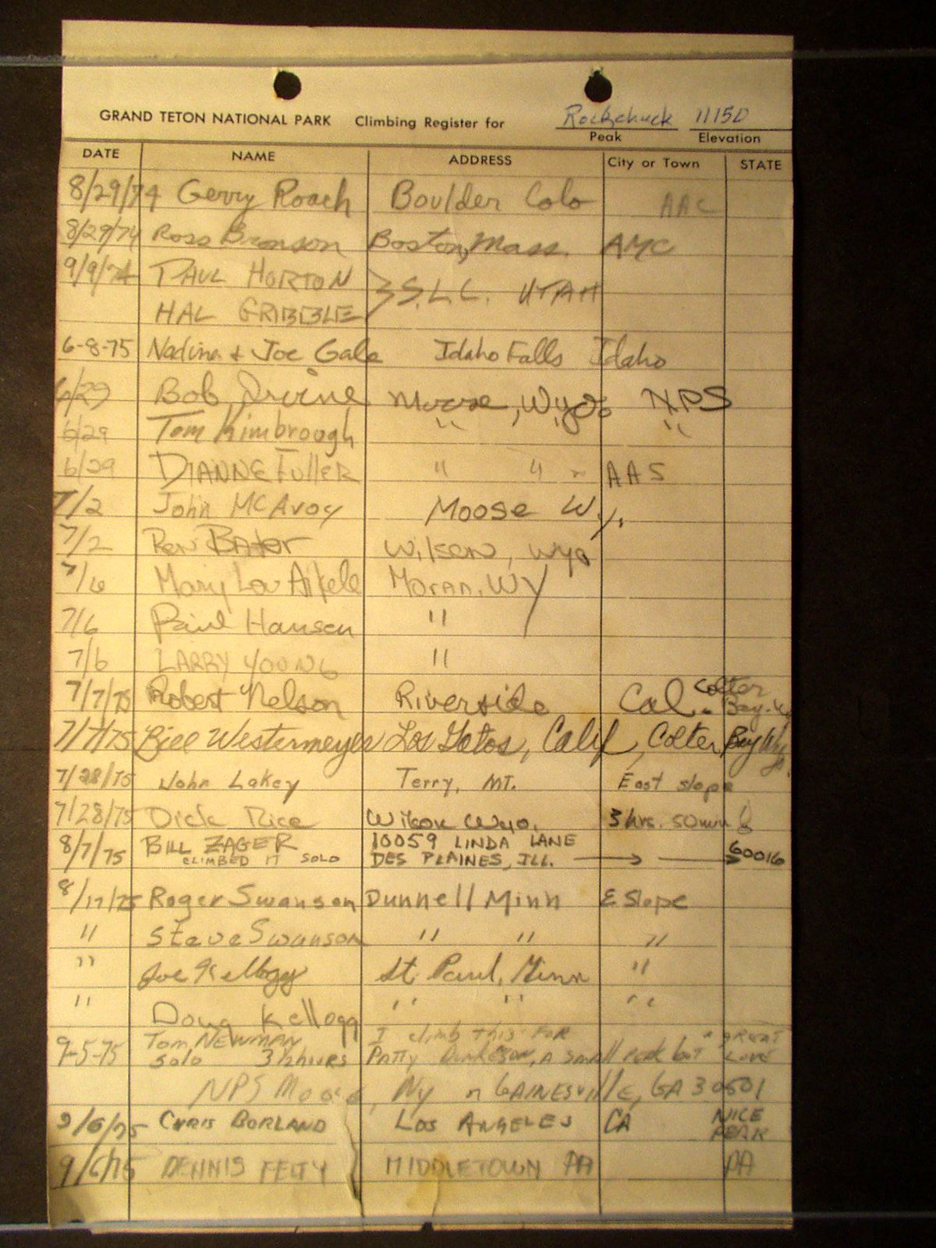 GRAND TETON NATIONAL PARK Climbing Register for Rockchuck 11150
Peak Elevation
DATE NAME ADDRESS City or Town STATE
8/29/74 Gerry Roach Boulder Colo AAC
8/29/74 Ross Bronson Boston, Mass. AMC
9/9/74 PAUL HORTON } S.L.C. UTAH
HAL GRIBBLE
6-8-75 Nadine & Joe Gale Idaho Falls Idaho
6/29 Bob Irvine Moose, Wyo NPS
6/29 Tom Kimbrough " "
6/29 DIANNE Fuller " " AAS
7/2 John McAvoy Moose Wy.
7/2 Wilson, Wyo
7/6 Mary Lou Moran, WY
7/6 Paul Hansen "
7/6 LARRY YOUNG "
7/7/75 Robert Nelson Riverside Cal. Colter
Bay. Wy
7/7/75 Bill Westermeyer Los Gatos, Calif, Colter Bay Wy.
7/28/75 John Lakey Terry, MT. East slope
7/28/75 Dick Rice Wilson Wyo. 3 hrs. 50 min
8/7/75 BILL ZAGER 10059 LINDA LANE
CLIMBED IT SOLO DES PLAINES, ILL. → → 60016
8/17/75 Roger Swanson Dunnell Minn E Slope
" Steve Swanson " " "
" Joe Kellogg St. Paul, Minn "
" Doug Kellogg " " "
9-5-75 Tom NEWMAN I climb this FOR "GREAT
solo HOURS PATTY A small peak but LOVE
NPS Moose, GAINESVILLE, GA 30501
9/6/75 CHRIS BORLAND LOS ANGELES CA NICE
PEAK
9/6/75 DENNIS FELTY MIDDLETOWN PA PA